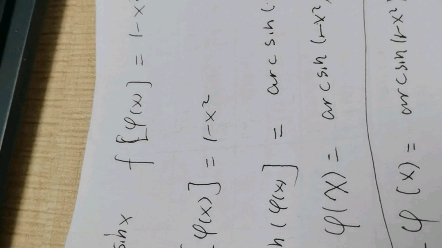 sinx f[φ(x)] = 1-x
φ(x)] = 1-x²
n(φ(x)] = arcsin(
φ(x) = arcsin(1-x²
φ(x) = arcsin(1-x²